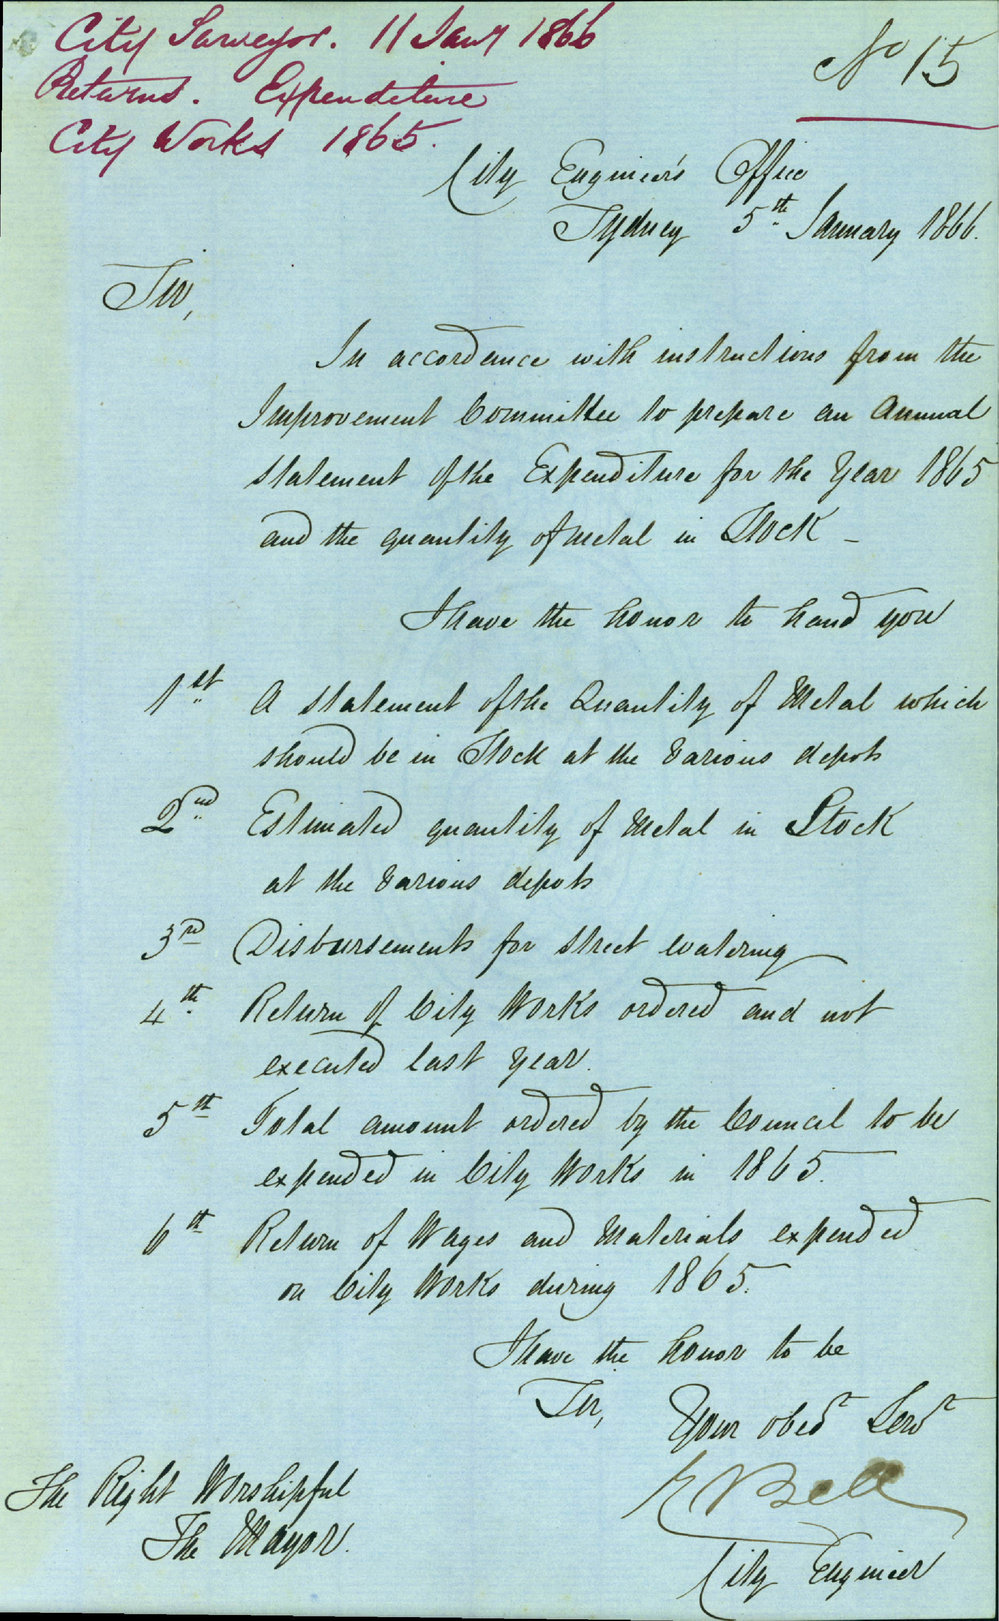 City Surveyor. 11 Jany 1866
Returns. Expenditure
City Works 1865.
No 15
City Engineer's Office
Sydney 5th January 1866.
Sir,
In accordance with instructions from the
Improvement Committee to prepare an Annual
statement of the Expenditure for the Year 1865
and the quantity of Metal in Stock –
I have the honor to hand you
1st A statement of the Quantity of Metal which
should be in Stock at the various depots
2nd Estimated quantity of Metal in Stock
at the various depots
3rd Disbursements for street watering
4th Return of City Works ordered and not
executed last Year.
5th Total amount ordered by the Council to be
expended in City Works in 1865.
6th Return of Wages and Materials expended
on City Works during 1865.
I have the honor to be
Sir,
Your obedt Servt
E Bell
City Engineer
The Right Worshipful
The Mayor.